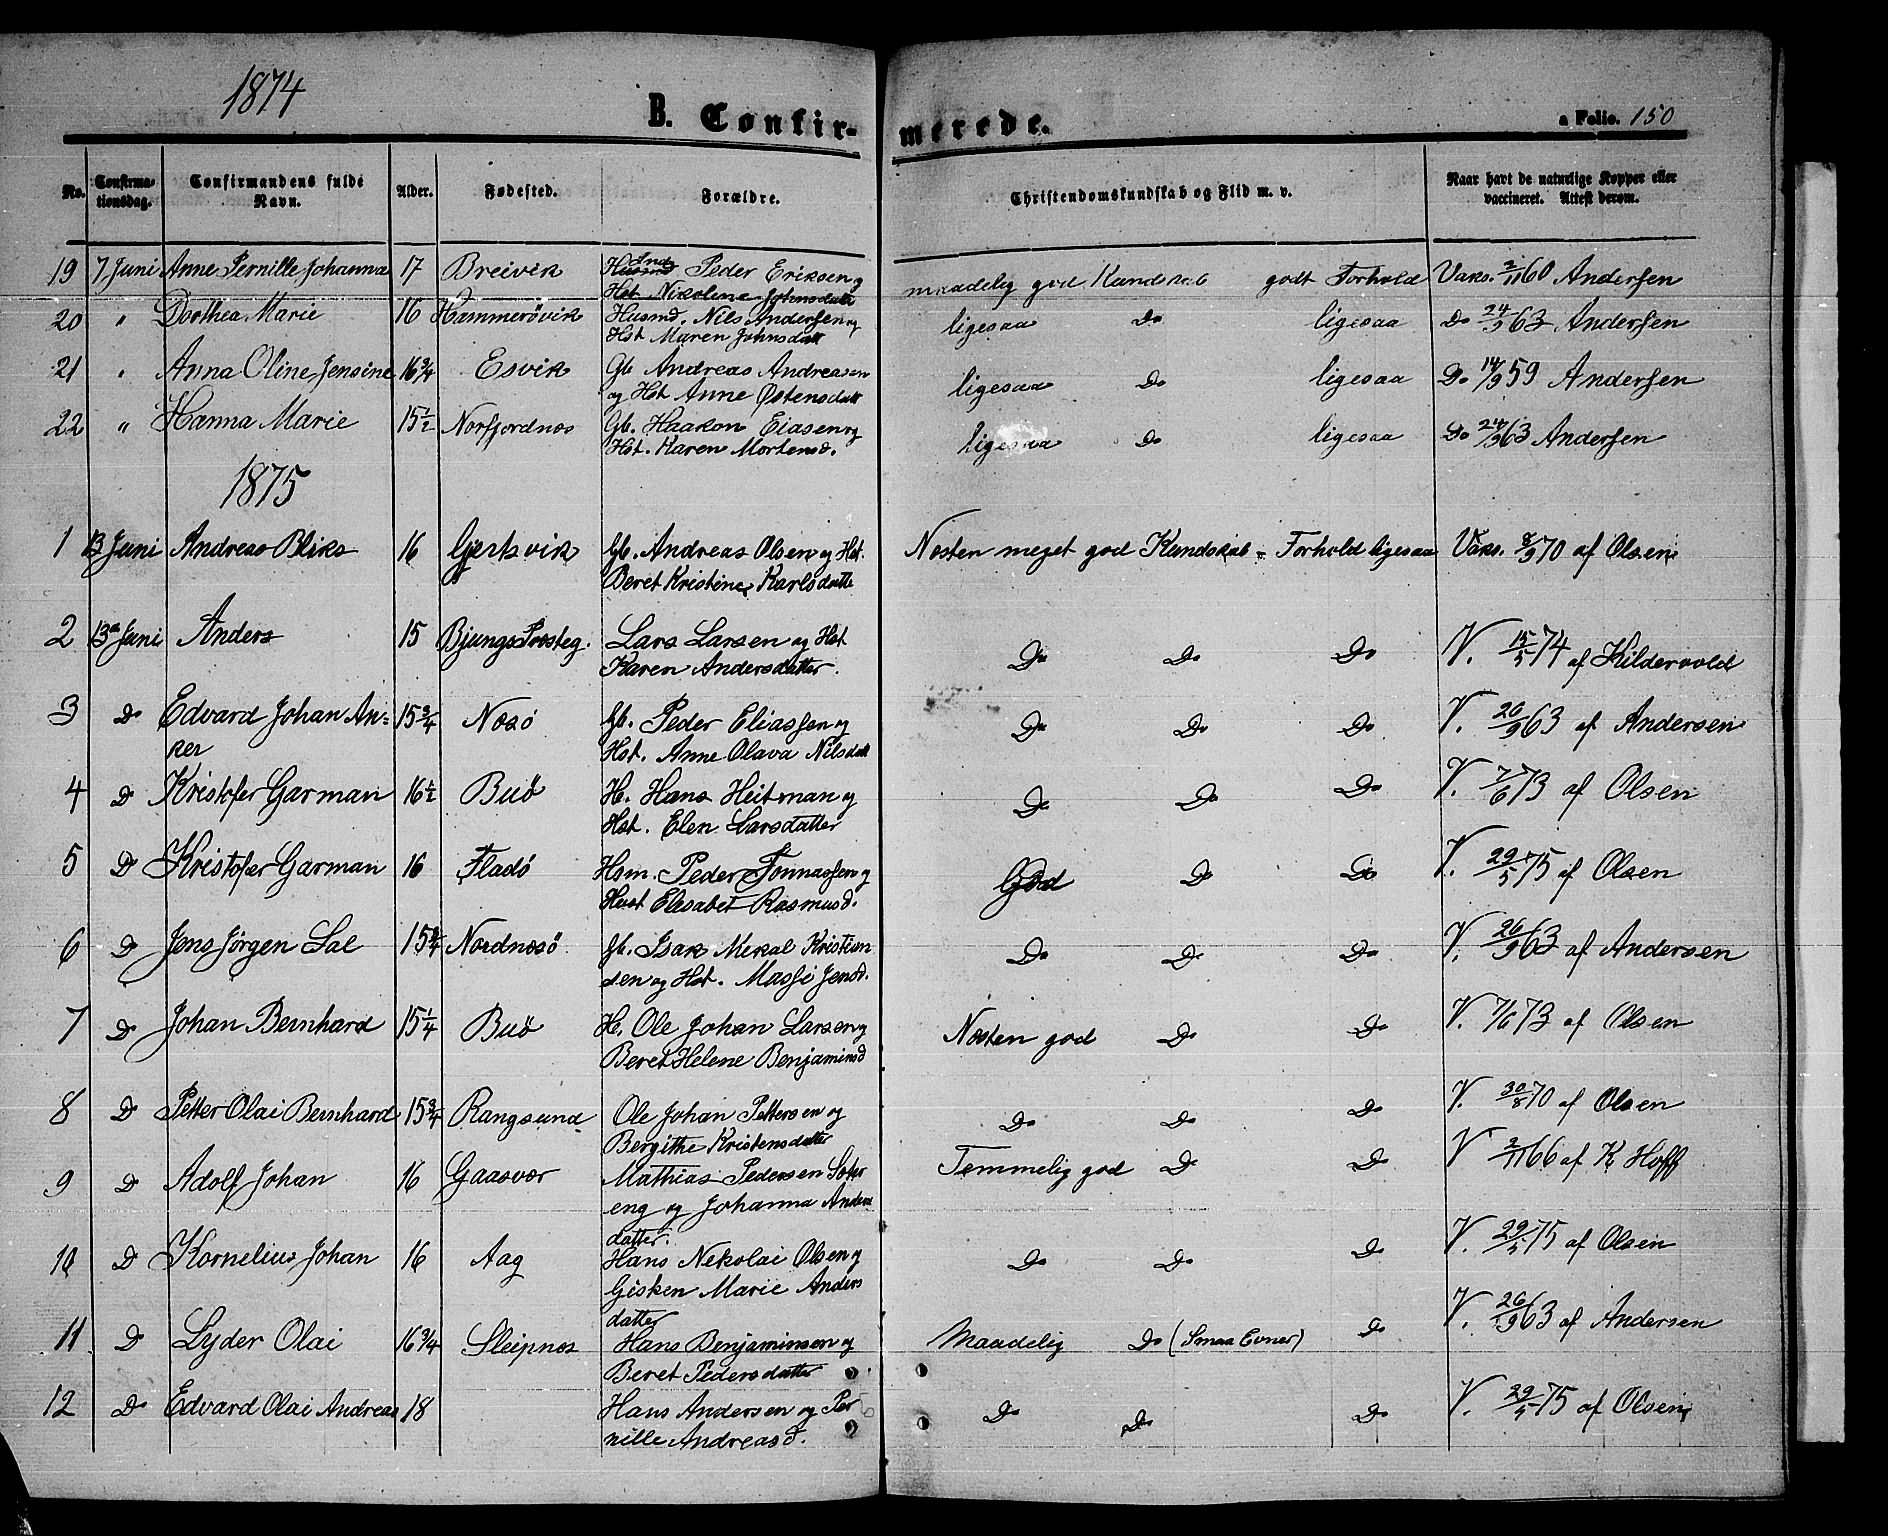 1874
B. Confir-
merede.
a Folio. 150
No. Confirma-tionsdag. Confirmandens fulde Navn. Alder. Fødested. Forældre. Christendomskundskab og Flid m. v. Naar havt de naturlige Kopper eller vaccineret. Attest derom.
19 7 Juni Anne Pernille Johanna 17 Breivik Ind. Peder Eriksen og maadelig god Kundskab godt Forhold Vaks. 2/11 60 Andersen
Hst Nikolene Johnsdatt
20 " Dorthea Marie 16 Hammerøvik Husmd. Nils Andersen og ligesaa Do ligesaa Do 24/9 63 Andersen
Hst Maren Johnsdatt
21 " Anna Oline Jensine 16 3/4 Esvik Gb. Andreas Andreasen ligesaa Do ligesaa Do 14/9 59 Andersen
og Hst Anne Østensdatt
22 " Hanna Marie 15 1/2 Norfjordnæs Gb. Haakon Eiasen og ligesaa Do ligesaa Do 24/9 63 Andersen
Hst. Karen Mortensd.
1875
1 13 Juni Andreas Bliks 16 Gjertsvik Gb. Andreas Olsen og Hst. Næsten meget god Kundskab - Forhold ligesaa Vaks. 8/9 70 af Olsen
Beret Kristine Karlsdatte
2 13de Juni Anders 15 Bjungs Præsteg. Lars Larsen og Hst Do Do Do V. 15/5 74 af Kildervold
Karen Andersdatter.
3 Do Edvard Johan An- 15 3/4 Næsø Gb. Peder Eliassen og Do Do Do V. 26/9 63 af Andersen
ker Hst. Anne Olava Nilsdatt
4 Do Kristofer Garman 16 1/2 Buø H. Hans Heitman og Do Do Do V. 7/6 73 af Olsen
Hst. Elen Larsdatter
5 Do Kristofer Garman 16 Fladø Hsm. Peder Tonnassen og God Do Do V. 29/5 75 af Olsen
Hust Elesabet Rasmusd.
6 Do Jens Jørgen Lae 15 3/4 Nordnæsø Gb. Isak Mekal Kristian Do Do Do V. 26/9 63 af Andersen
sen og Hst. Masji Jensd.
7 Do Johan Bernhard 15 1/4 Buø H. Ole Johan Larsen og Næsten god Do Do V. 7/6 73 af Olsen
Beret Helene Benjaminsd
8 Do Petter Olai Bernhard 15 3/4 Rangsund Ole Johan Pettersen og Do Do Do V. 30/8 70 af Olsen
Bergithe Kristensdatter
9 Do Adolf Johan 16 Gaasvær Mathias Pedersen Sæter Temmelig god Do Do V 2/11 66 af K Hoff
eng og Johanna Anders
datter.
10 Do Kornelius Johan 16 Aag Hans Nekolai Olsen og Do Do Do V. 29/5 75 af Olsen
Gisken Marie Anders
datter
11 Do Lyder Olai 16 3/4 Sleipnæs Hans Benjaminsen og Maadelig Do (Smaa Evner) Do V. 26/9 63 af Andersen
Beret Pedersdatter
12 Do Edvard Olai Andreas 18 Hans Andersen og Per Do Do Do V. 29/5 75 af Olsen
nille Andreasd.